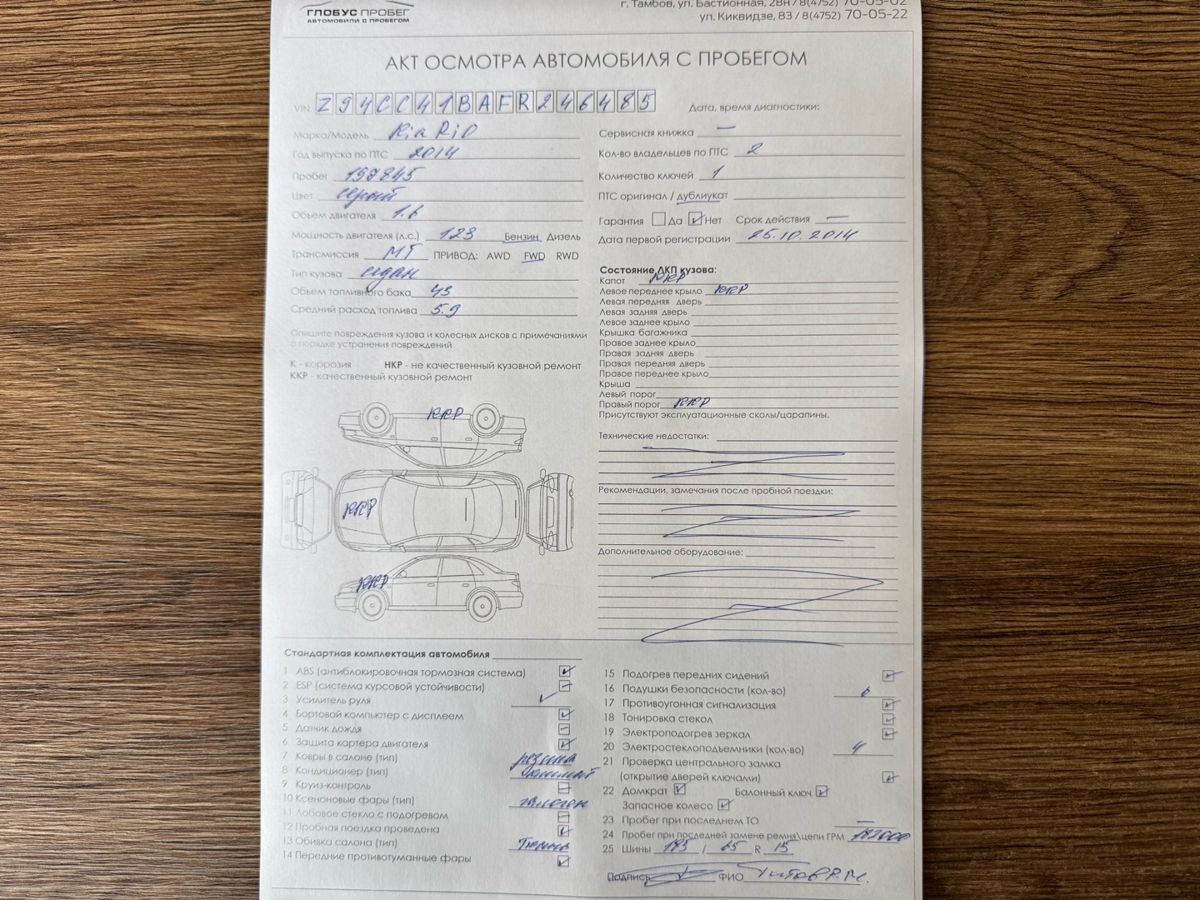 ГЛОБУС ПРОБЕГ
АВТОМОБИЛИ С ПРОБЕГОМ
г. Тамбов, ул. Бастионная, 28Н / 8(4752) 70-05-02
ул. Киквидзе, 83 / 8(4752) 70-05-22
АКТ ОСМОТРА АВТОМОБИЛЯ С ПРОБЕГОМ
VIN Z94CC41BAFR246485
Дата, время диагностики:
Марка/Модель Kia RiO
Год выпуска по ПТС 2014
Пробег 198845
Цвет серый
Объем двигателя 1.6
Мощность двигателя (л.с.) 123 Бензин Дизель
Трансмиссия МТ ПРИВОД: AWD FWD RWD
Тип кузова седан
Объем топливного бака 43
Средний расход топлива 5.9
Опишите повреждения кузова и колесных дисков с примечаниями
о порядке устранения повреждений
К - коррозия НКР - не качественный кузовной ремонт
ККР - качественный кузовной ремонт
ККР
ККР
ККР
Сервисная книжка —
Кол-во владельцев по ПТС 2
Количество ключей 1
ПТС оригинал / дубликат
Гарантия Да Нет Срок действия —
Дата первой регистрации 25.10.2014
Состояние ЛКП кузова:
Капот ККР
Левое переднее крыло ККР
Левая передняя дверь
Левая задняя дверь
Левое заднее крыло
Крышка багажника
Правое заднее крыло
Правая задняя дверь
Правая передняя дверь
Правое переднее крыло
Крыша
Левый порог
Правый порог ККР
Присутствуют эксплуатационные сколы/царапины.
Технические недостатки:
Рекомендации, замечания после пробной поездки:
Дополнительное оборудование:
Стандартная комплектация автомобиля
1 ABS (антиблокировочная тормозная система)
2 ESP (система курсовой устойчивости)
3 Усилитель руля
4 Бортовой компьютер с дисплеем
5 Датчик дождя
6 Защита картера двигателя
7 Ковры в салоне (тип) резина
8 Кондиционер (тип)
9 Круиз-контроль
10 Ксеноновые фары (тип) галоген
11 Лобовое стекло с подогревом
12 Пробная поездка проведена
13 Обивка салона (тип) Ткань
14 Передние противотуманные фары
15 Подогрев передних сидений
16 Подушки безопасности (кол-во) 6
17 Противоугонная сигнализация
18 Тонировка стекол
19 Электроподогрев зеркал
20 Электростеклоподъемники (кол-во) 4
21 Проверка центрального замка
(открытие дверей ключами)
22 Домкрат Балонный ключ
Запасное колесо
23 Пробег при последнем ТО —
24 Пробег при последней замене ремня\цепи ГРМ 182000
25 Шины 185 / 65 R 15
Подпись ФИО Титов Р.М.